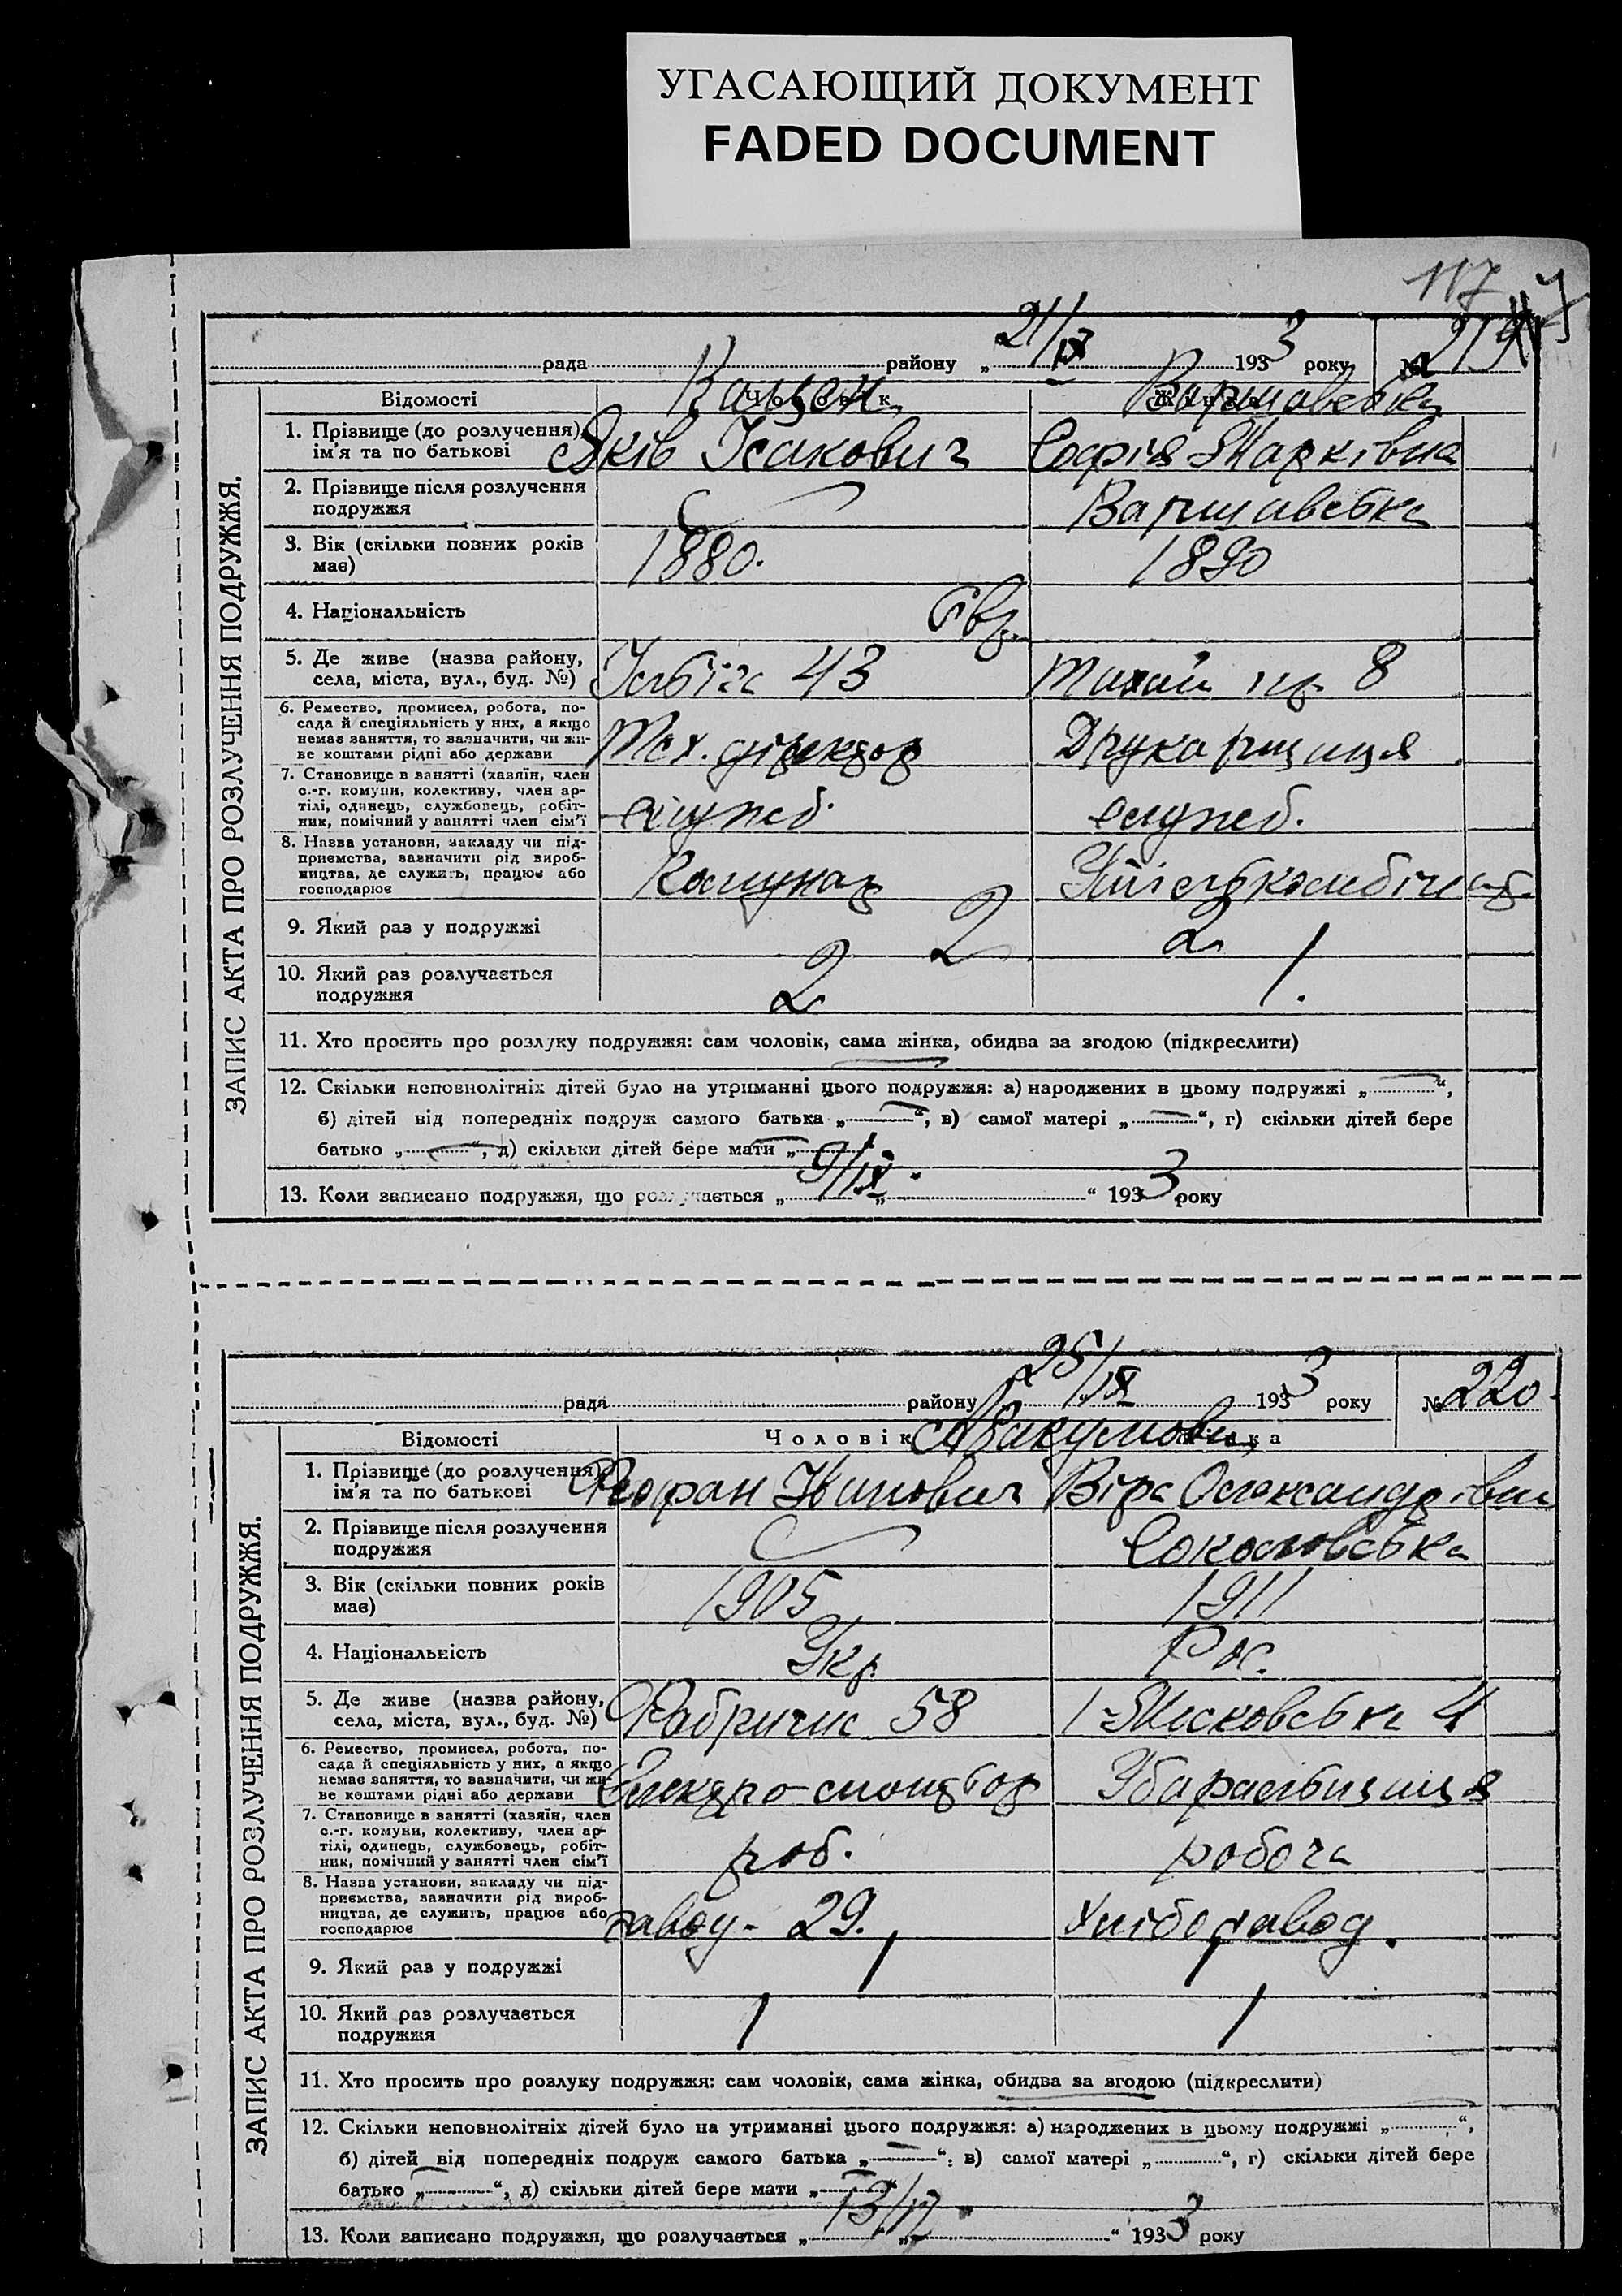 УГАСАЮЩИЙ ДОКУМЕНТ
FADED DOCUMENT
117
рада района „ 21/IX 1933 року, № 219
Відомості Чоловік Жінка Варшавська
1. Прізвище (до розлучення) ім'я та по батькові Яків Ісакович Софія Марківна
2. Прізвище після розлучення подружжя Варшавська
3. Вік (скільки повних років має) 1880. 1890
4. Національність Євр.
5. Де живе (назва району, села, міста, вул., буд. №) 43 8
6. Ремество, промисел, робота, посада й спеціяльність у них, а якщо немає заняття, то зазначити, чи живе коштами рідні або держави Тех. директор Друкарщиця
7. Становище в занятті (хазяїн, член с.-г. комуни, колективу, член артілі, одинець, службовець, робітник, помічний у занятті член сім'ї служб. служб.
8. Назва установи, закладу чи підприємства, зазначити рід виробництва, де служить, працює або господарює Комунар
9. Який раз у подружжі 2 2
10. Який раз розлучається подружжя 2 1.
11. Хто просить про розлуку подружжя: сам чоловік, сама жінка, обидва за згодою (підкреслити)
12. Скільки неповнолітніх дітей було на утриманні цього подружжя: а) народжених в цьому подружжі „ — “,
б) дітей від попередніх подруж самого батька „ — “, в) самої матері „ — “, г) скільки дітей бере
батько „ — “, д) скільки дітей бере мати „
13. Коли записано подружжя, що розлучається „ 9/IX “ 1933 року
ЗАПИС АКТА ПРО РОЗЛУЧЕННЯ ПОДРУЖЖЯ.
рада району 25/IX 1933 року № 220.
Відомості Чоловік Жінка Авакумови
1. Прізвище (до розлучення) ім'я та по батькові Феофан Іванович Віра Олександрівна
2. Прізвище після розлучення подружжя Соколовська
3. Вік (скільки повних років має) 1905 1911
4. Національність Укр. Рос.
5. Де живе (назва району, села, міста, вул., буд. №) Фабрична 58 1 Московська 4
6. Ремество, промисел, робота, посада й спеціяльність у них, а якщо немає заняття, то зазначити, чи живе коштами рідні або держави Електро-монтьор
7. Становище в занятті (хазяїн, член с.-г. комуни, колективу, член артілі, одинець, службовець, робітник, помічний у занятті член сім'ї роб. робоча
8. Назва установи, закладу чи підприємства, зазначити рід виробництва, де служить, працює або господарює завод - 29. Хлібозавод.
9. Який раз у подружжі 1 1
10. Який раз розлучається подружжя 1 1
11. Хто просить про розлуку подружжя: сам чоловік, сама жінка, обидва за згодою (підкреслити)
12. Скільки неповнолітніх дітей було на утриманні цього подружжя: а) народжених в цьому подружжі „ “,
б) дітей від попередніх подруж самого батька „ — “: в) самої матері „ “, г) скільки дітей бере
батько „ “, д) скільки дітей бере мати „ “
13. Коли записано подружжя, що розлучається „ “ 1933 року
ЗАПИС АКТА ПРО РОЗЛУЧЕННЯ ПОДРУЖЖЯ.